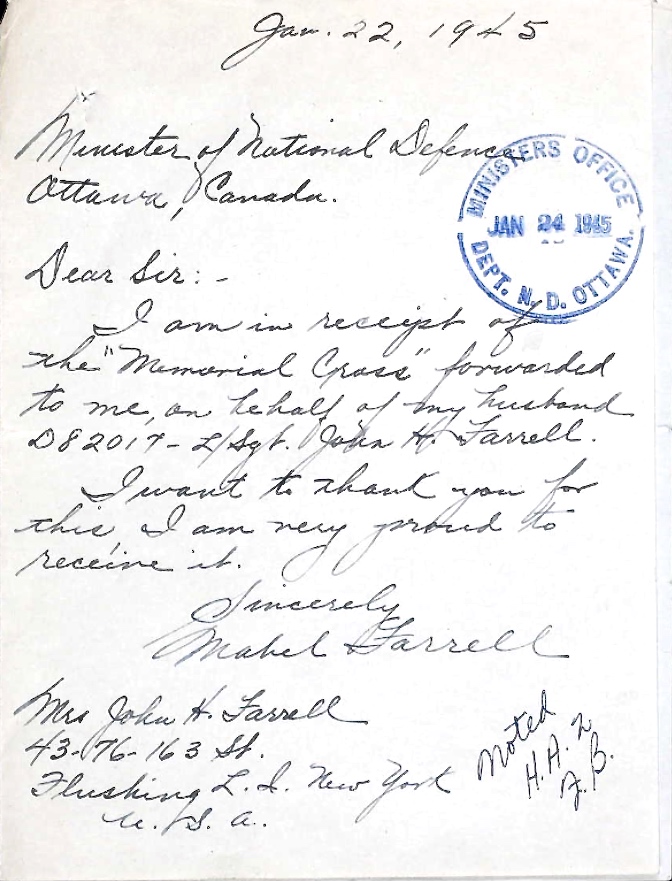 Jan. 22, 1945
Minister of National Defence
Ottawa, Canada.
MINISTERS OFFICE
JAN 24 1945
DEPT. N. D. OTTAWA.
Dear Sir:-
I am in receipt of
the "Memorial Cross" forwarded
to me, on behalf of my husband
D82017 - L/Sgt. John H. Farrell.
I want to thank you for
this, I am very proud to
receive it.
Sincerely
Mabel Farrell
Mrs John H. Farrell
43-76-163 St.
Flushing L. I. New York
U. S. A.
Noted
H.A. 2
J.B.